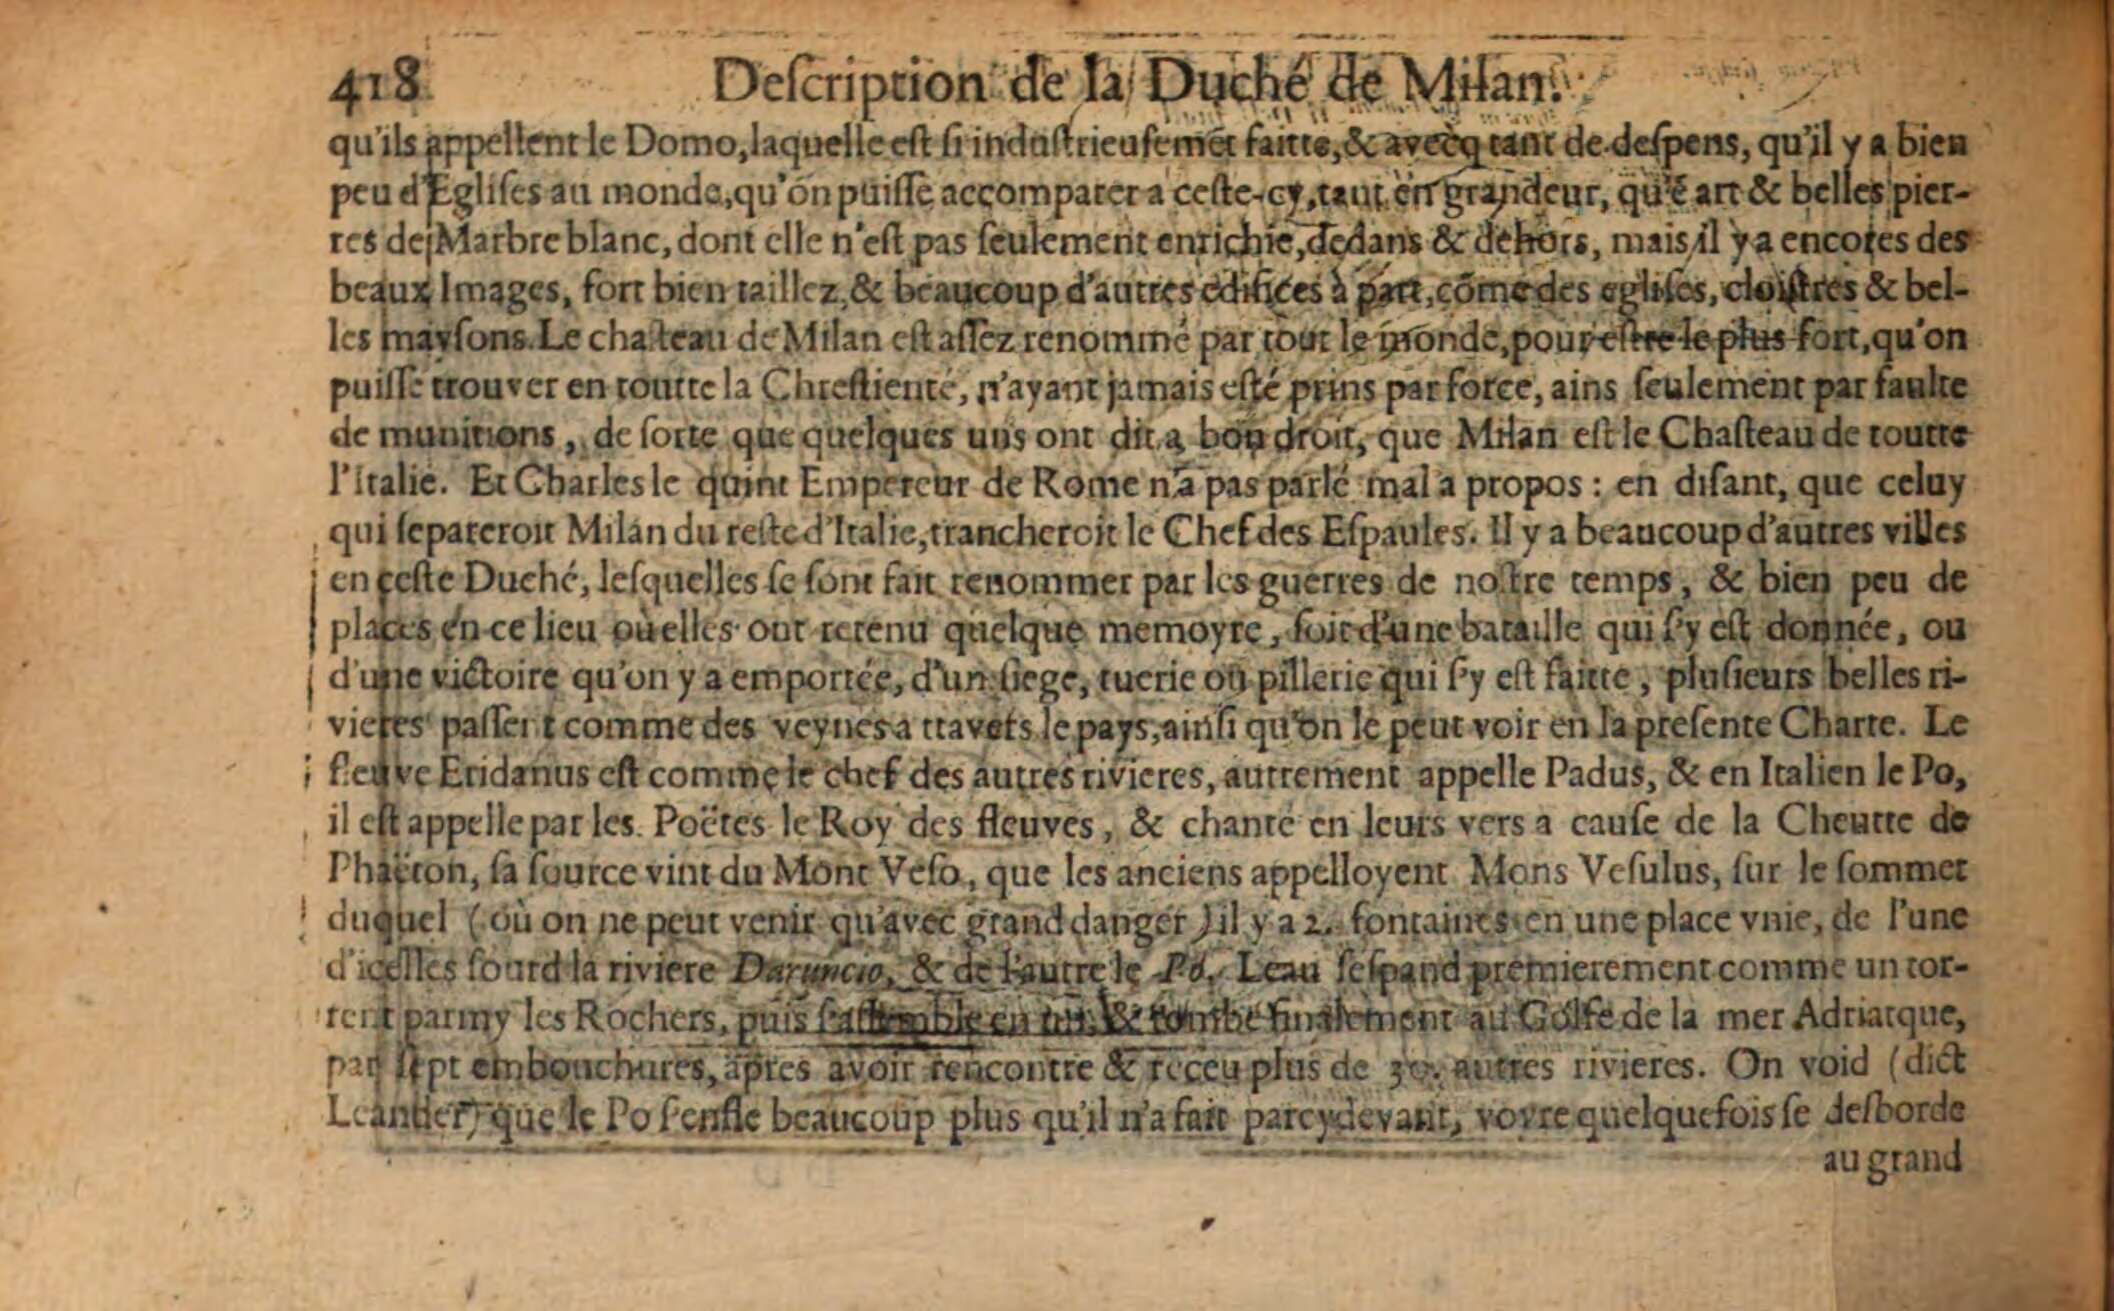 418 Deſcription de la Duché de Milan.
qu'ils appellent le Domo, laquelle eſt ſi induſtrieuſemẽt faitte, & avecq tant de deſpens, qu'il y a bien
peu d'Egliſes au monde, qu'on puiſſe accomparer a ceſte-cy, tant en grandeur, qu'ẽ art & belles pier-
res de Marbre blanc, dont elle n'eſt pas ſeulement enrichie, dedans & dehors, mais il y a encores des
beaux Images, fort bien taillez, & beaucoup d'autres edifices à part, cõme des egliſes, cloiſtres & bel-
les mayſons. Le chaſteau de Milan eſt aſſez renommé par tout le monde, pour eſtre le plus fort, qu'on
puiſſe trouver en toutte la Chreſtienté, n'ayant jamais eſté prins par force, ains ſeulement par faulte
de munitions, de ſorte que quelques uns ont dit a bon droit, que Milan eſt le Chaſteau de toutte
l'Italie. Et Charles le quint Empereur de Rome n'a pas parlé mal a propos : en diſant, que celuy
qui ſepareroit Milan du reſte d'Italie, trancheroit le Chef des Eſpaules. Il y a beaucoup d'autres villes
en ceſte Duché, leſquelles ſe ſont fait renommer par les guerres de noſtre temps, & bien peu de
places en ce lieu où elles ont retenu quelque memoyre, ſoit d'une bataille qui ſ'y eſt donnée, ou
d'une victoire qu'on y a emportée, d'un ſiege, tuerie ou pillerie qui ſ'y eſt faitte, pluſieurs belles ri-
vieres paſſent comme des veynes a travers le pays, ainſi qu'on le peut voir en la preſente Charte. Le
fleuve Eridanus eſt comme le chef des autres rivieres, autrement appelle Padus, & en Italien le Po,
il eſt appelle par les Poëtes le Roy des fleuves, & chanté en leurs vers a cauſe de la Cheutte de
Phaëton, ſa ſource vint du Mont Veſo, que les anciens appelloyent Mons Veſulus, ſur le ſommet
duquel ( où on ne peut venir qu'avec grand danger ) il y a 2. fontaines en une place vnie, de l'une
d'icelles ſourd la riviere Daruncio, & de l'autre le Po. Leau ſeſpand premierement comme un tor-
rent parmy les Rochers, puis ſ'aſſemble en un, & tombe finalement au Golfe de la mer Adriatque,
par ſept embouchures, apres avoir rencontre & receu plus de 30. autres rivieres. On void (dict
Leander) que le Po ſ'enfle beaucoup plus qu'il n'a fait parcydevant, voyre quelquefois ſe deſborde
au grand